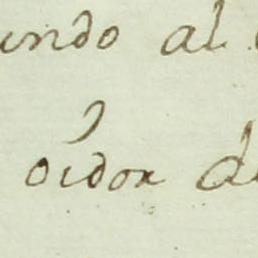 undo al
oidor de